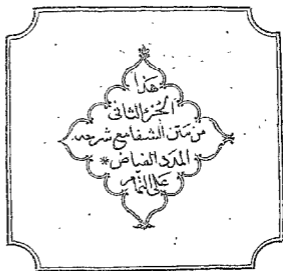 هذا
الجزء الثانى
من متن الشفا مع شرحه
المدد الفياض *
على التمام